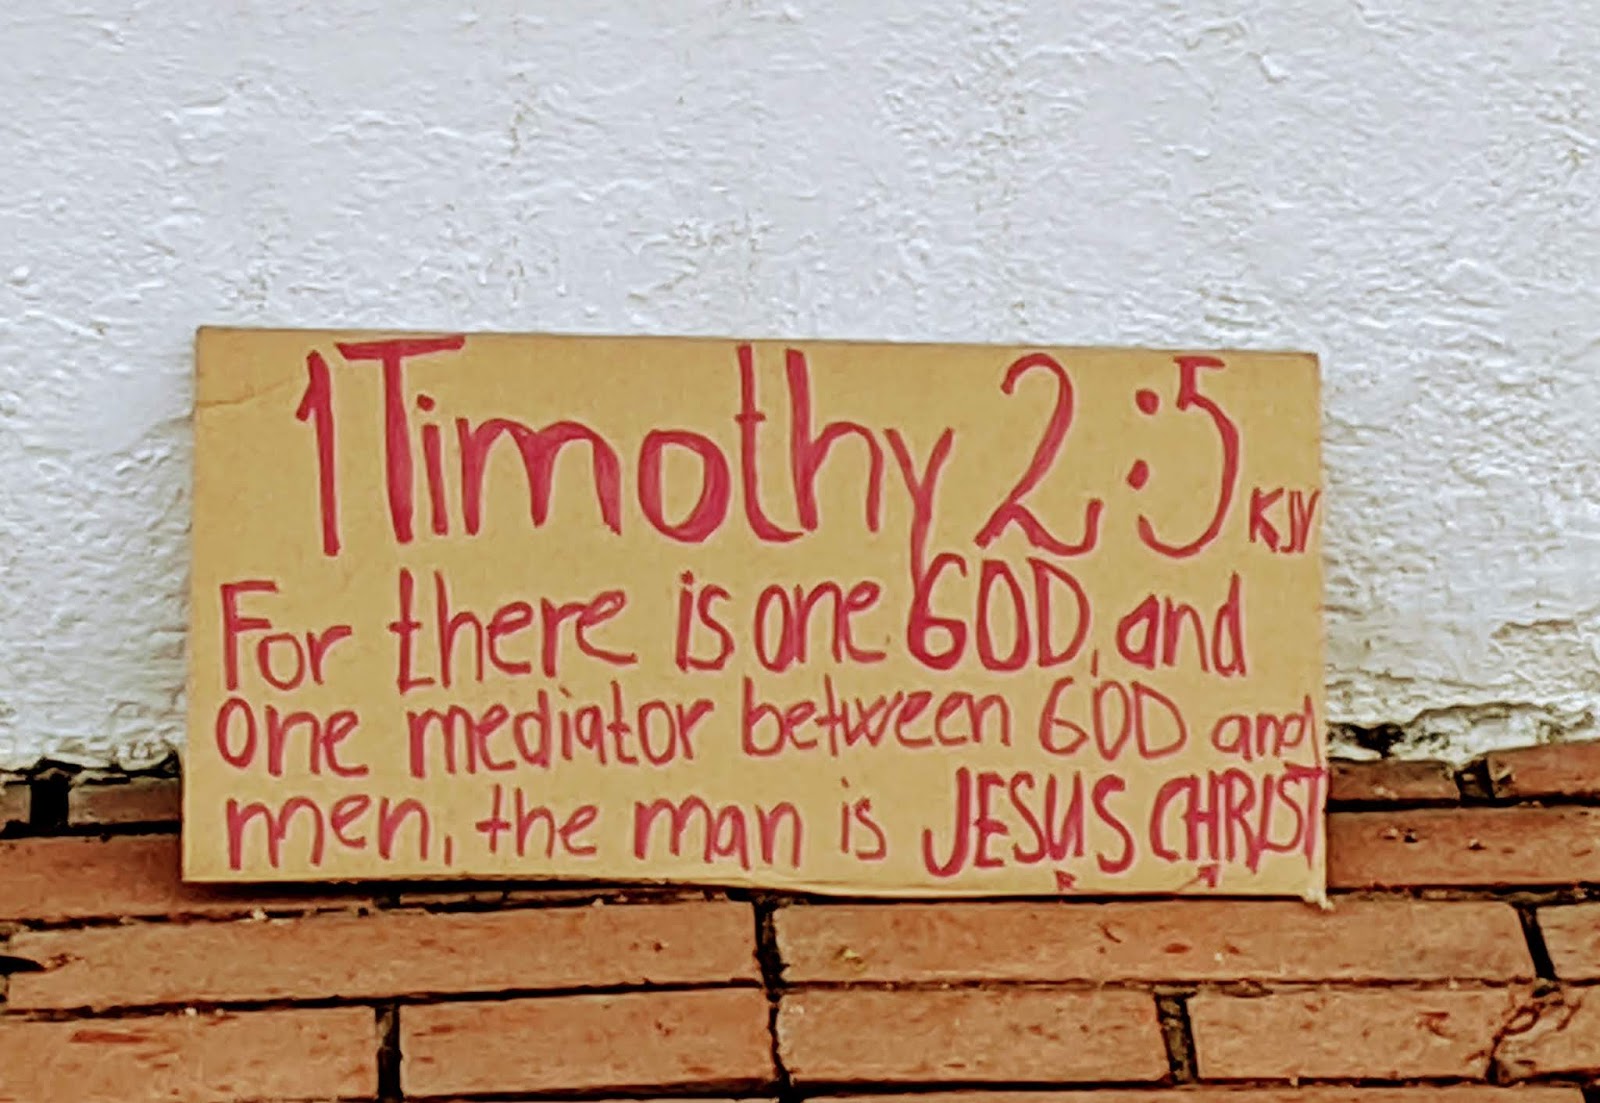 1 Timothy 2:5 KJV
For there is one GOD, and
one mediator between GOD and
men, the man is JESUS CHRIST